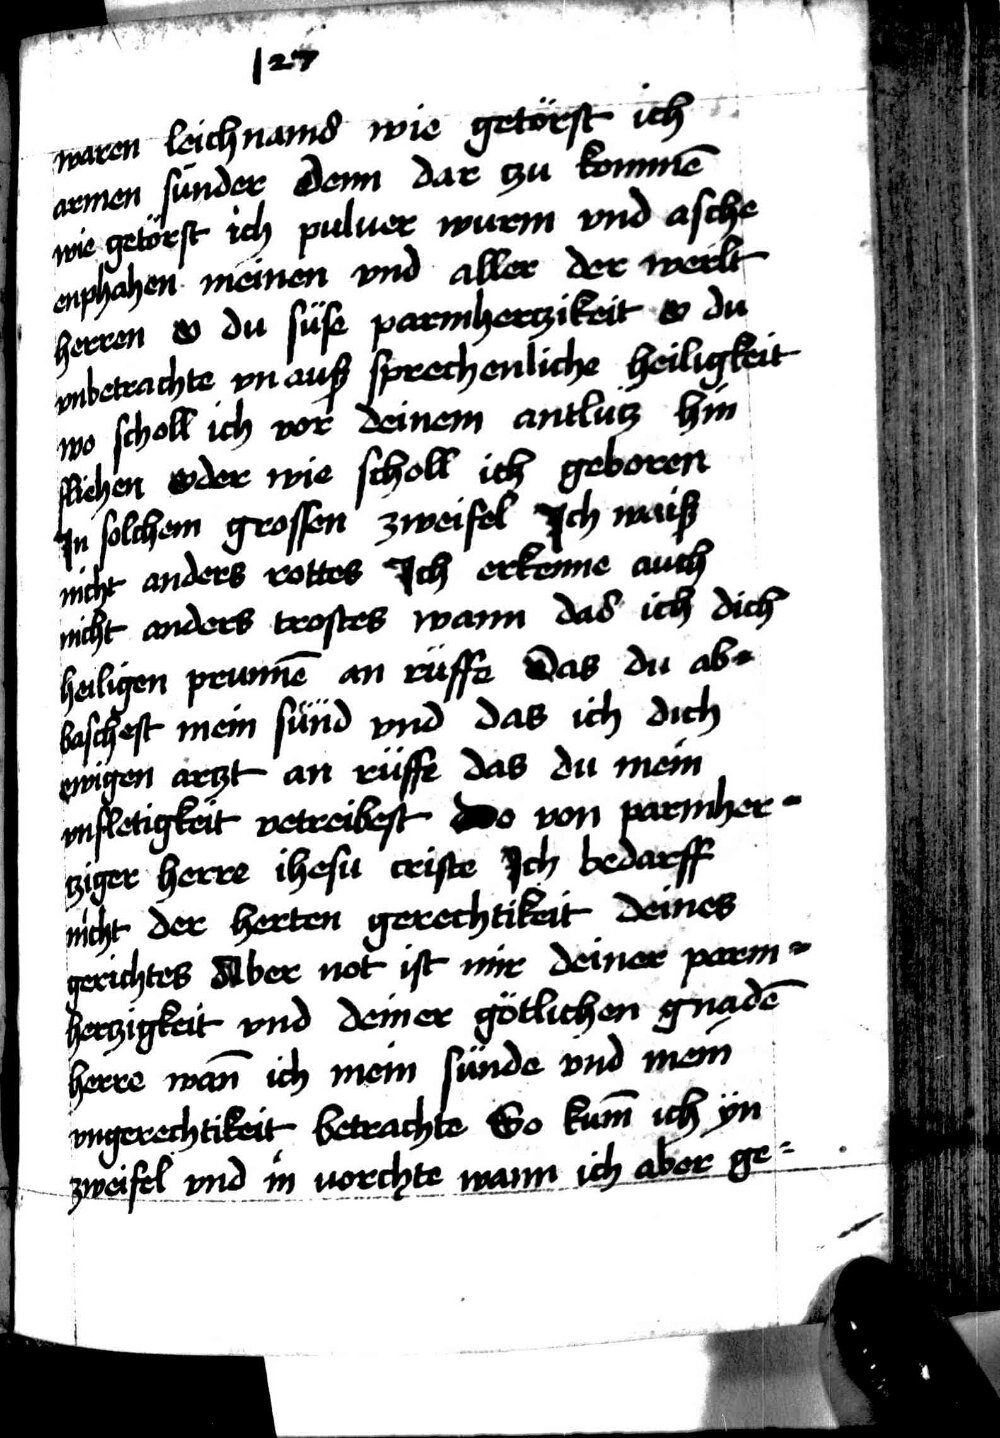 127
waren leichnams wie getörst ich
armen sünder Denn dar tzu kommē
wie getörst ich puluer wurm vnd asche
enphahen meinen vnd aller der werlt
herren o du süse parmhertzikeit o du
vnbetrachte vn auß sprechenliche heiligkeit
wo scholl ich vor deinem antlutz hin
fliehen oder wie scholl ich geboren
In solchem grossen zweifel Ich waiß
nicht anders rottes Ich erkenne auch
nicht anders trostes wann das ich dich
heiligen prunnē an rüffe Das du ab-
baschest mein sünd vnd das ich dich
ewigen artzt an rüffe das du mein
vnfletigkeit vetreibest do von parmher-
tziger herre ihesu criste Ich bedarff
nicht der herten gerechtikeit deines
gerichtes Aber not ist mir deiner parm-
hertzigkeit vnd deiner götlichen gnadē
herre wan̄ ich mein sünde vnd mein
vngerechtikeit betrachte So kum̄ ich ÿn
zweifel vnd in vorchte wann ich aber ge-